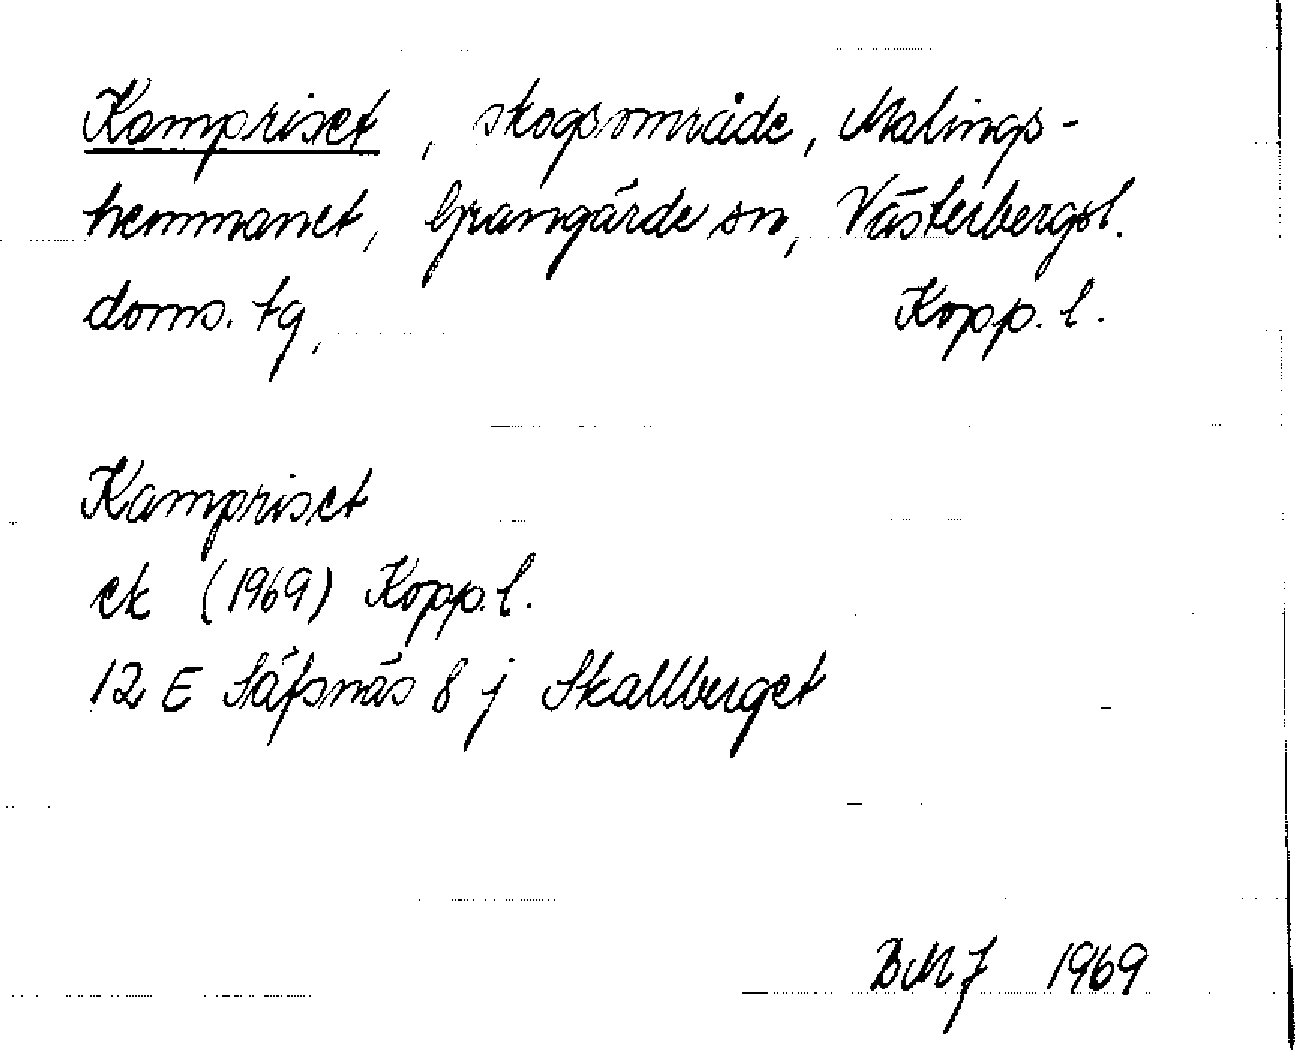 Kampriset, skogsområde, Malings-
hemmanet, Grangärde sn, Västerbergsl.
doms. tg, Kopp. l.
Kampriset
ek (1969) Kopp. l.
12 E Säfsnäs 8 j Skallberget
BMJ 1969